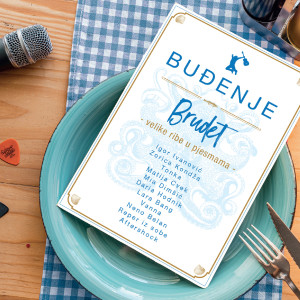 BUĐENJE
Brudet
- velike ribe u pjesmama -
Igor Ivanović
Zorica Kondža
Tonka
Matija Cvek
Mia Dimšić
Daria Hodnik
Lara Bang
Vanna
Nano Belan
Reper iz sobe
Aftershock